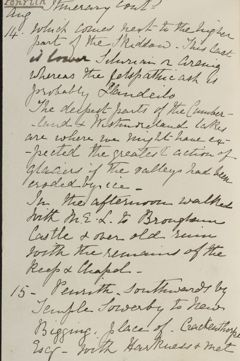 Penrith
Aug Itinerary Contd
14. which comes next to the higher
part of the Skiddaw. This last
is lower Silurian or Arenig
whereas the felspathic ash is
probably Llandeilo
The deepest parts of the Cumber-
-land & Westmoreland lakes
are where we might have ex-
-pected the greatest action of
glaciers if the valleys had been
eroded by ice -
In the afternoon walked
with M.E.L. to Brougham
Castle & over old ruin
with the remains of the
Keep & Chapel -
15 - Penrith Southwards by
Temple Sowerby to New
Bigging, place of Crackenthorpe
Esq - with Harkness & met